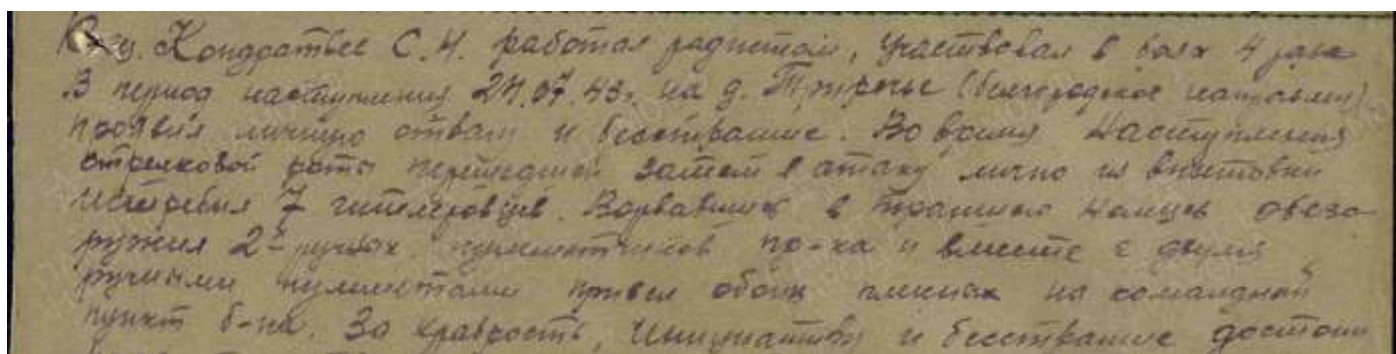 Кр-ец. Кондратьев С.И. работая радистом, участвовал в боях 4 раза
В период наступления 27.07.43г. на д. Триречье (белгородское направлен)
проявил личную отвагу и бесстрашие. Во время наступления
стрелковой роты перешедшей затем в атаку лично из винтовки
истребил 7 гитлеровцев. Ворвавшись в траншею немцев обезо-
ружил 2-х ручных пулеметчиков пр-ка и вместе с двумя
ручными пулеметами привел обоих пленных на командный
пункт б-на. За храбрость, инициативу и бесстрашие достоин